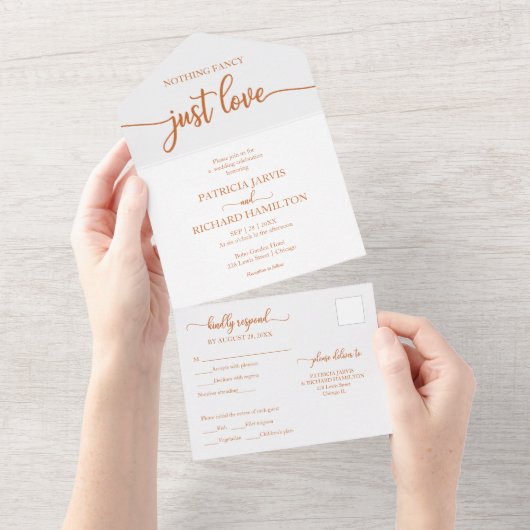 NOTHING FANCY
just love
Please join us for
a wedding celebration
honoring
PATRICIA JARVIS
and
RICHARD HAMILTON
SEP | 28 | 20XX
At six o'clock in the afternoon
Boho Garden Hotel
128 Lewis Street | Chicago
Reception to follow
kindly respond
BY AUGUST 28, 20XX
M
Accepts with pleasure
Declines with regrets
Number attending
Please initial the entree of each guest
Fish Filet mignon
Vegetarian Children's plate
please deliver to
PATRICIA JARVIS
& RICHARD HAMILTON
128 Lewis Street
Chicago IL